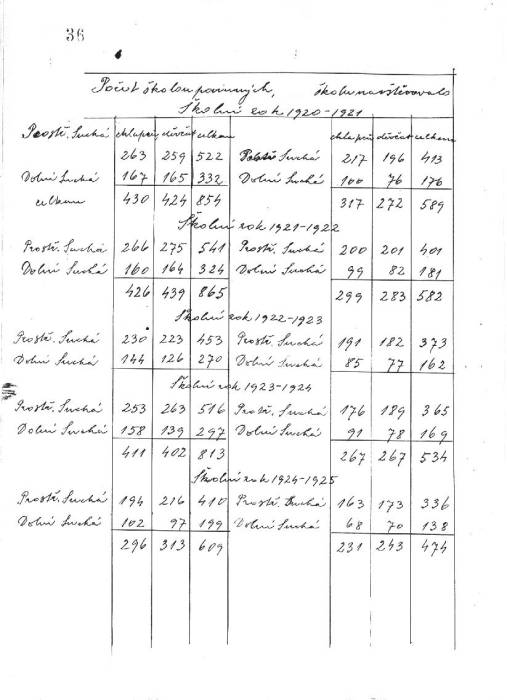 36
Počet školou povinných, školu navštěvovalo
Školní rok 1920-1921
Prostř. Suchá chlapců děvčat celkem chlapců děvčat celkem
263 259 522 Prostř. Suchá 217 196 413
Dolní Suchá 167 165 332 Dolní Suchá 100 76 176
celkem 430 424 854 317 272 589
Školní rok 1921-1922
Prostř. Suchá 266 275 541 Prostř. Suchá 200 201 401
Dolní Suchá 160 164 324 Dolní Suchá 99 82 181
426 439 865 299 283 582
Školní rok 1922-1923
Prostř. Suchá 230 223 453 Prostř. Suchá 191 182 373
Dolní Suchá 144 126 270 Dolní Suchá 85 77 162
Školní rok 1923-1924
Prostř. Suchá 253 263 516 Prostř. Suchá 176 189 365
Dolní Suchá 158 139 297 Dolní Suchá 91 78 169
411 402 813 267 267 534
Školní rok 1924-1925
Prostř. Suchá 194 216 410 Prostř. Suchá 163 173 336
Dolní Suchá 102 97 199 Dolní Suchá 68 70 138
296 313 609 231 243 474